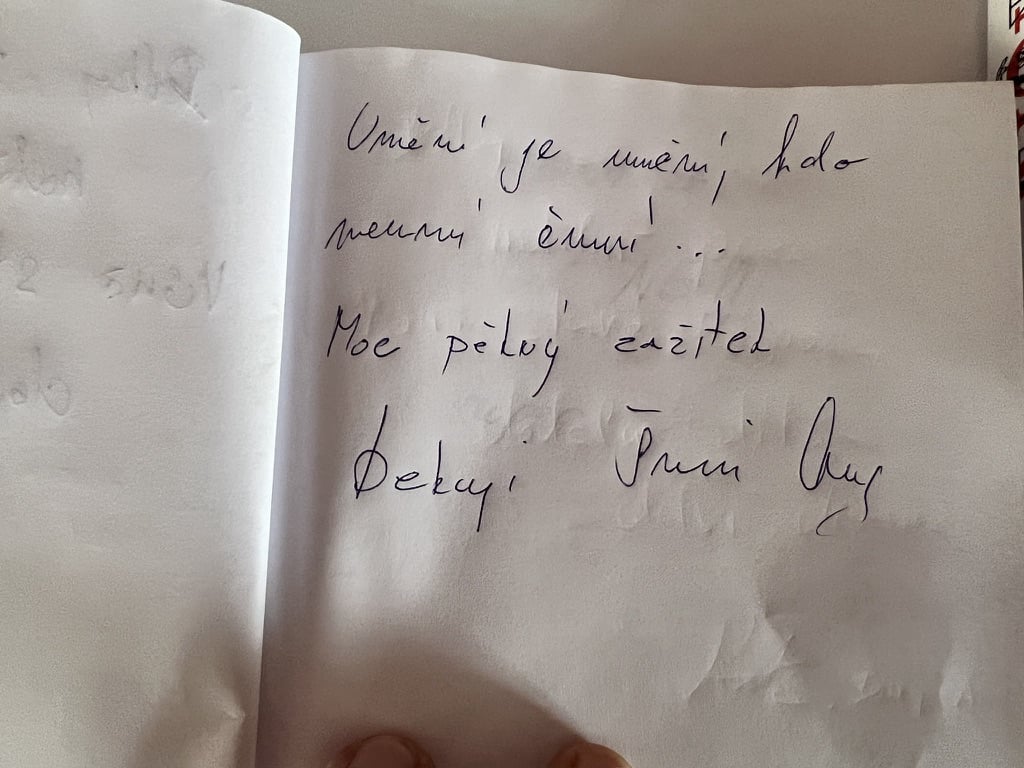 Umění je umění, kdo
neumí čumí!...
Moc pěkný zážitek
Děkuji